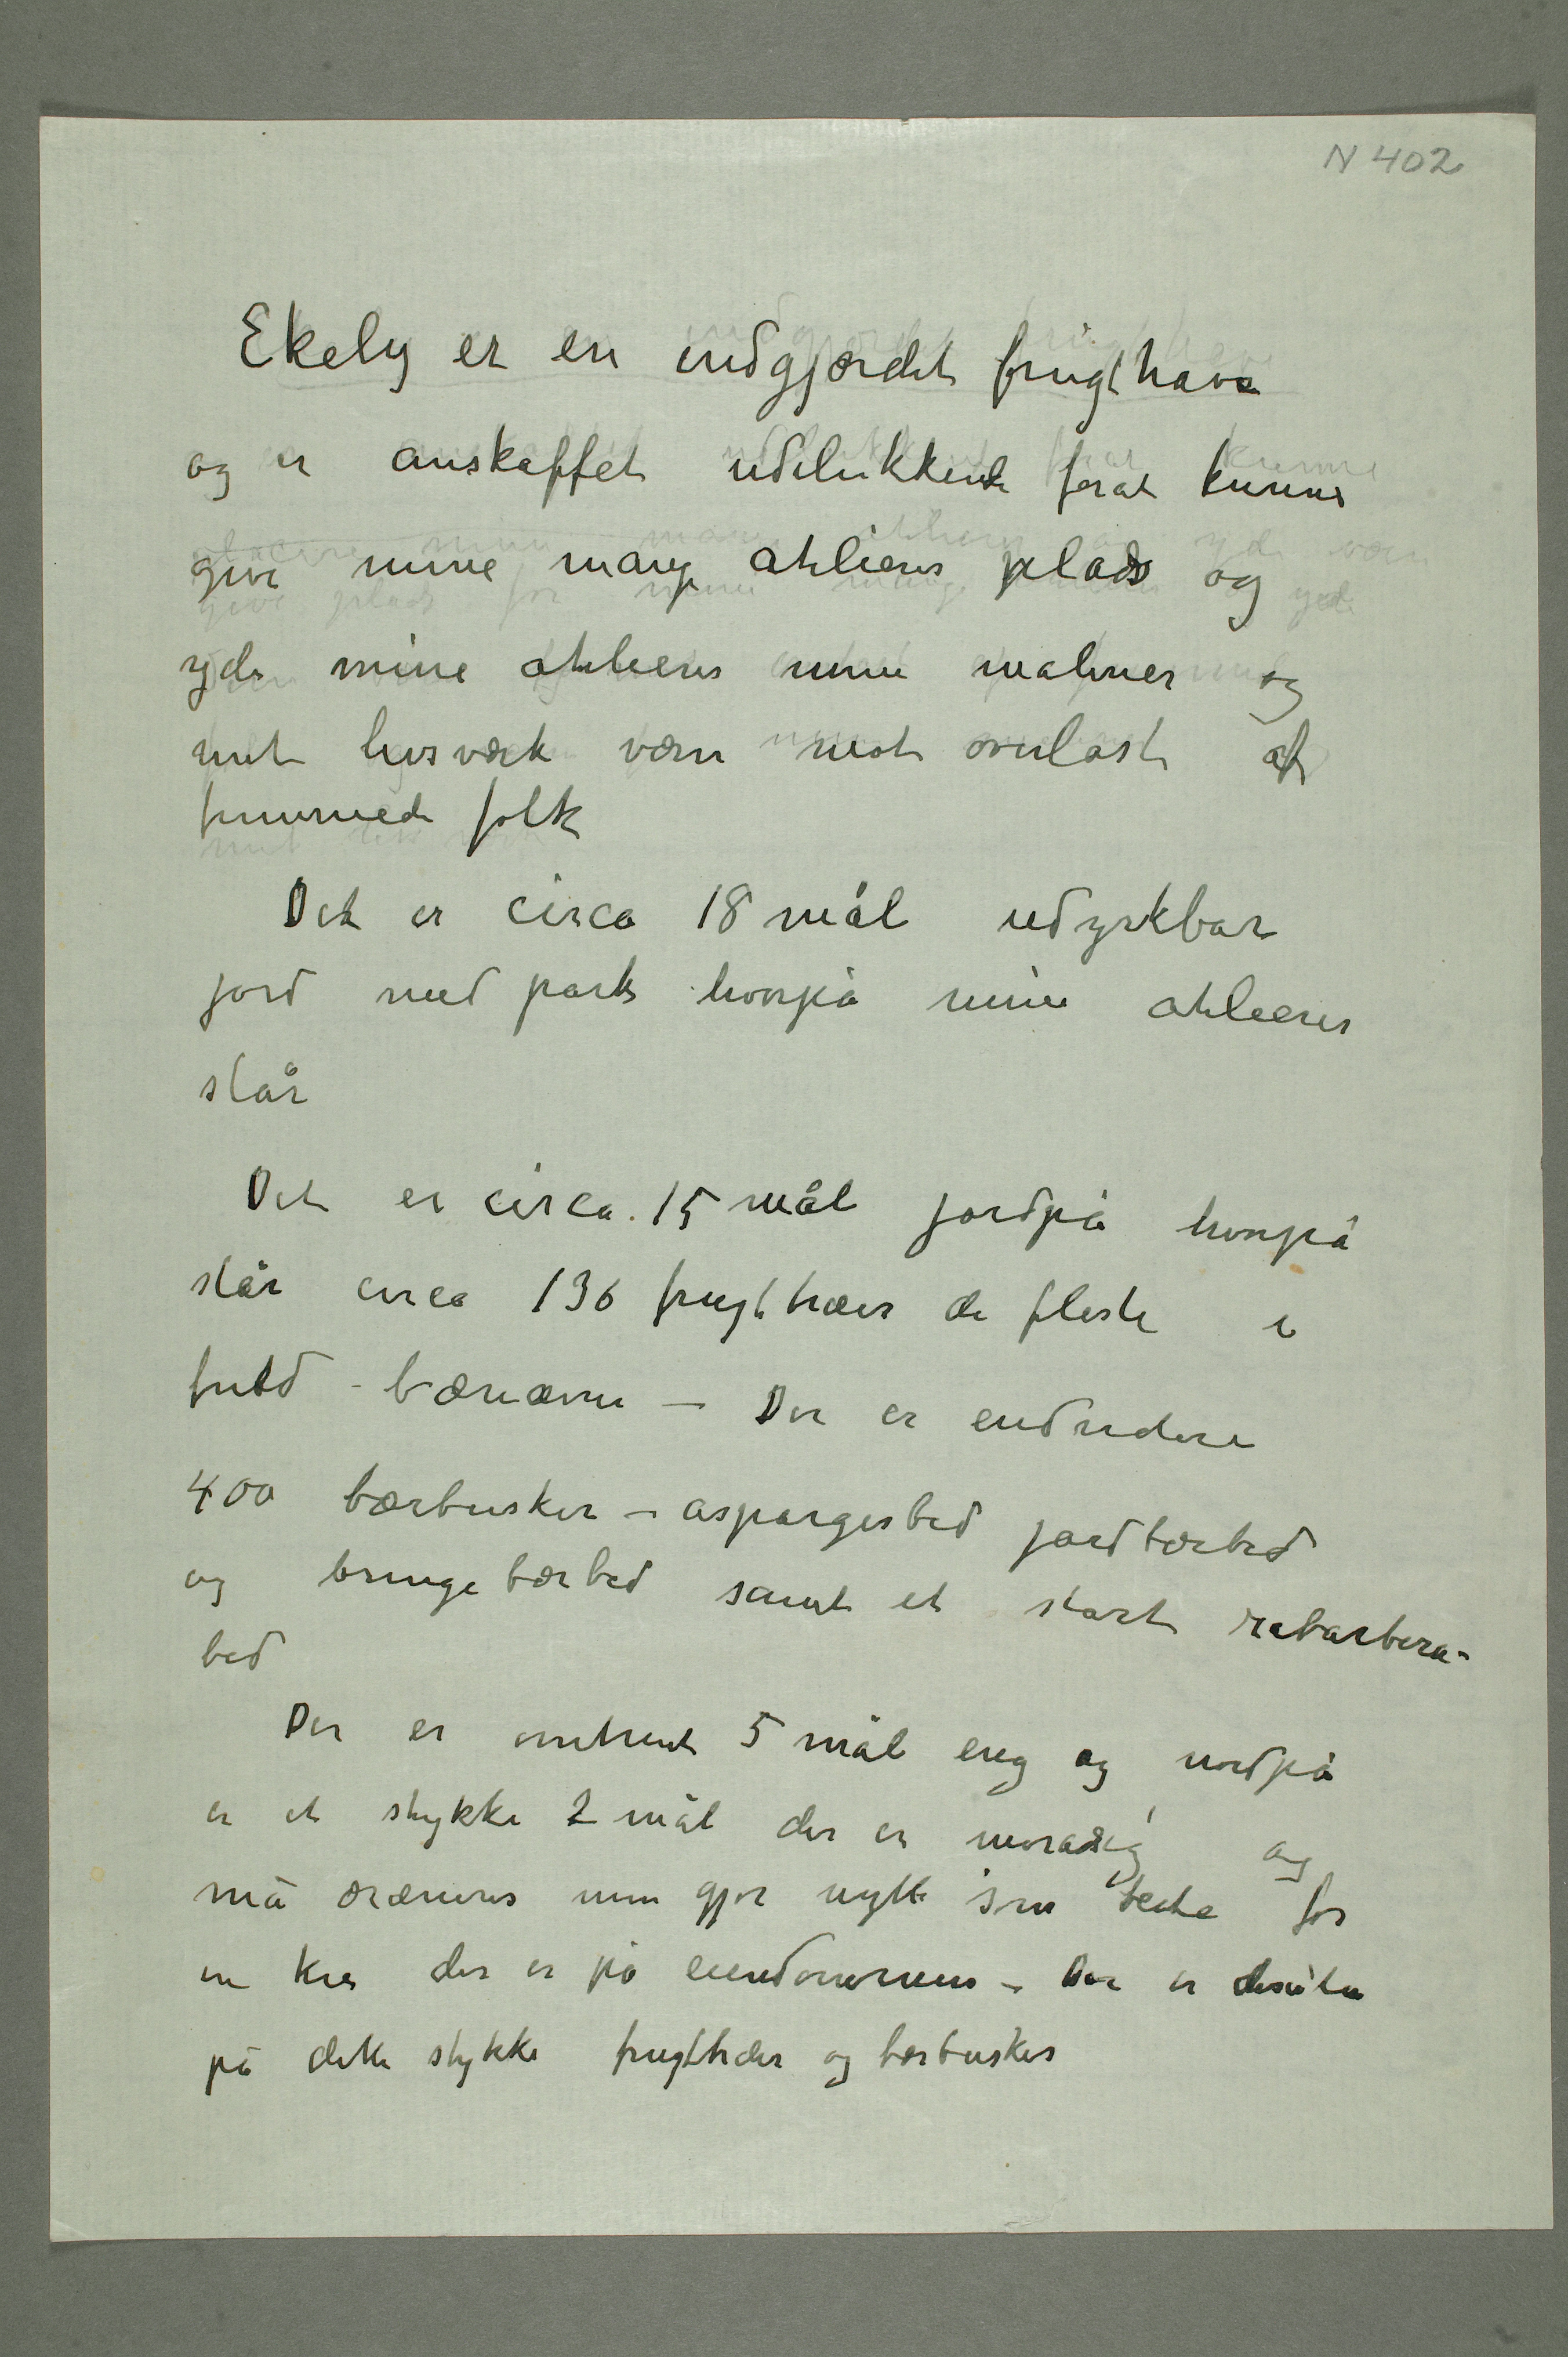 N 402
Ekely er en indgjærdet frugthave
og er anskaffet udelukkende forat kunne
give mine mang atelierer plads og
yde mine atelieers mine malerier og
mit livsværk værn mot overlast af
fremmede folk
Det er circa 18 mål udyrkbar
jord med park hvorpå mine atelieers
står
Det er circa 15 mål jordpå hvorpå
står circa 136 frugttræer de fleste i
fuld bæreævne – Der er endvidere
400 bærbusker – aspargesbed jordbærbed
og bringebærbed samt et stort rabarbera-
bed
Der er omtrent 5 mål eng og nordpå
er et stykke 2 mål der er morasig og
må dræneres men gjør nytte som beite for
en kre der er på eiendommen – Der er desuten
på dette stykke frugttræer og bærbusker